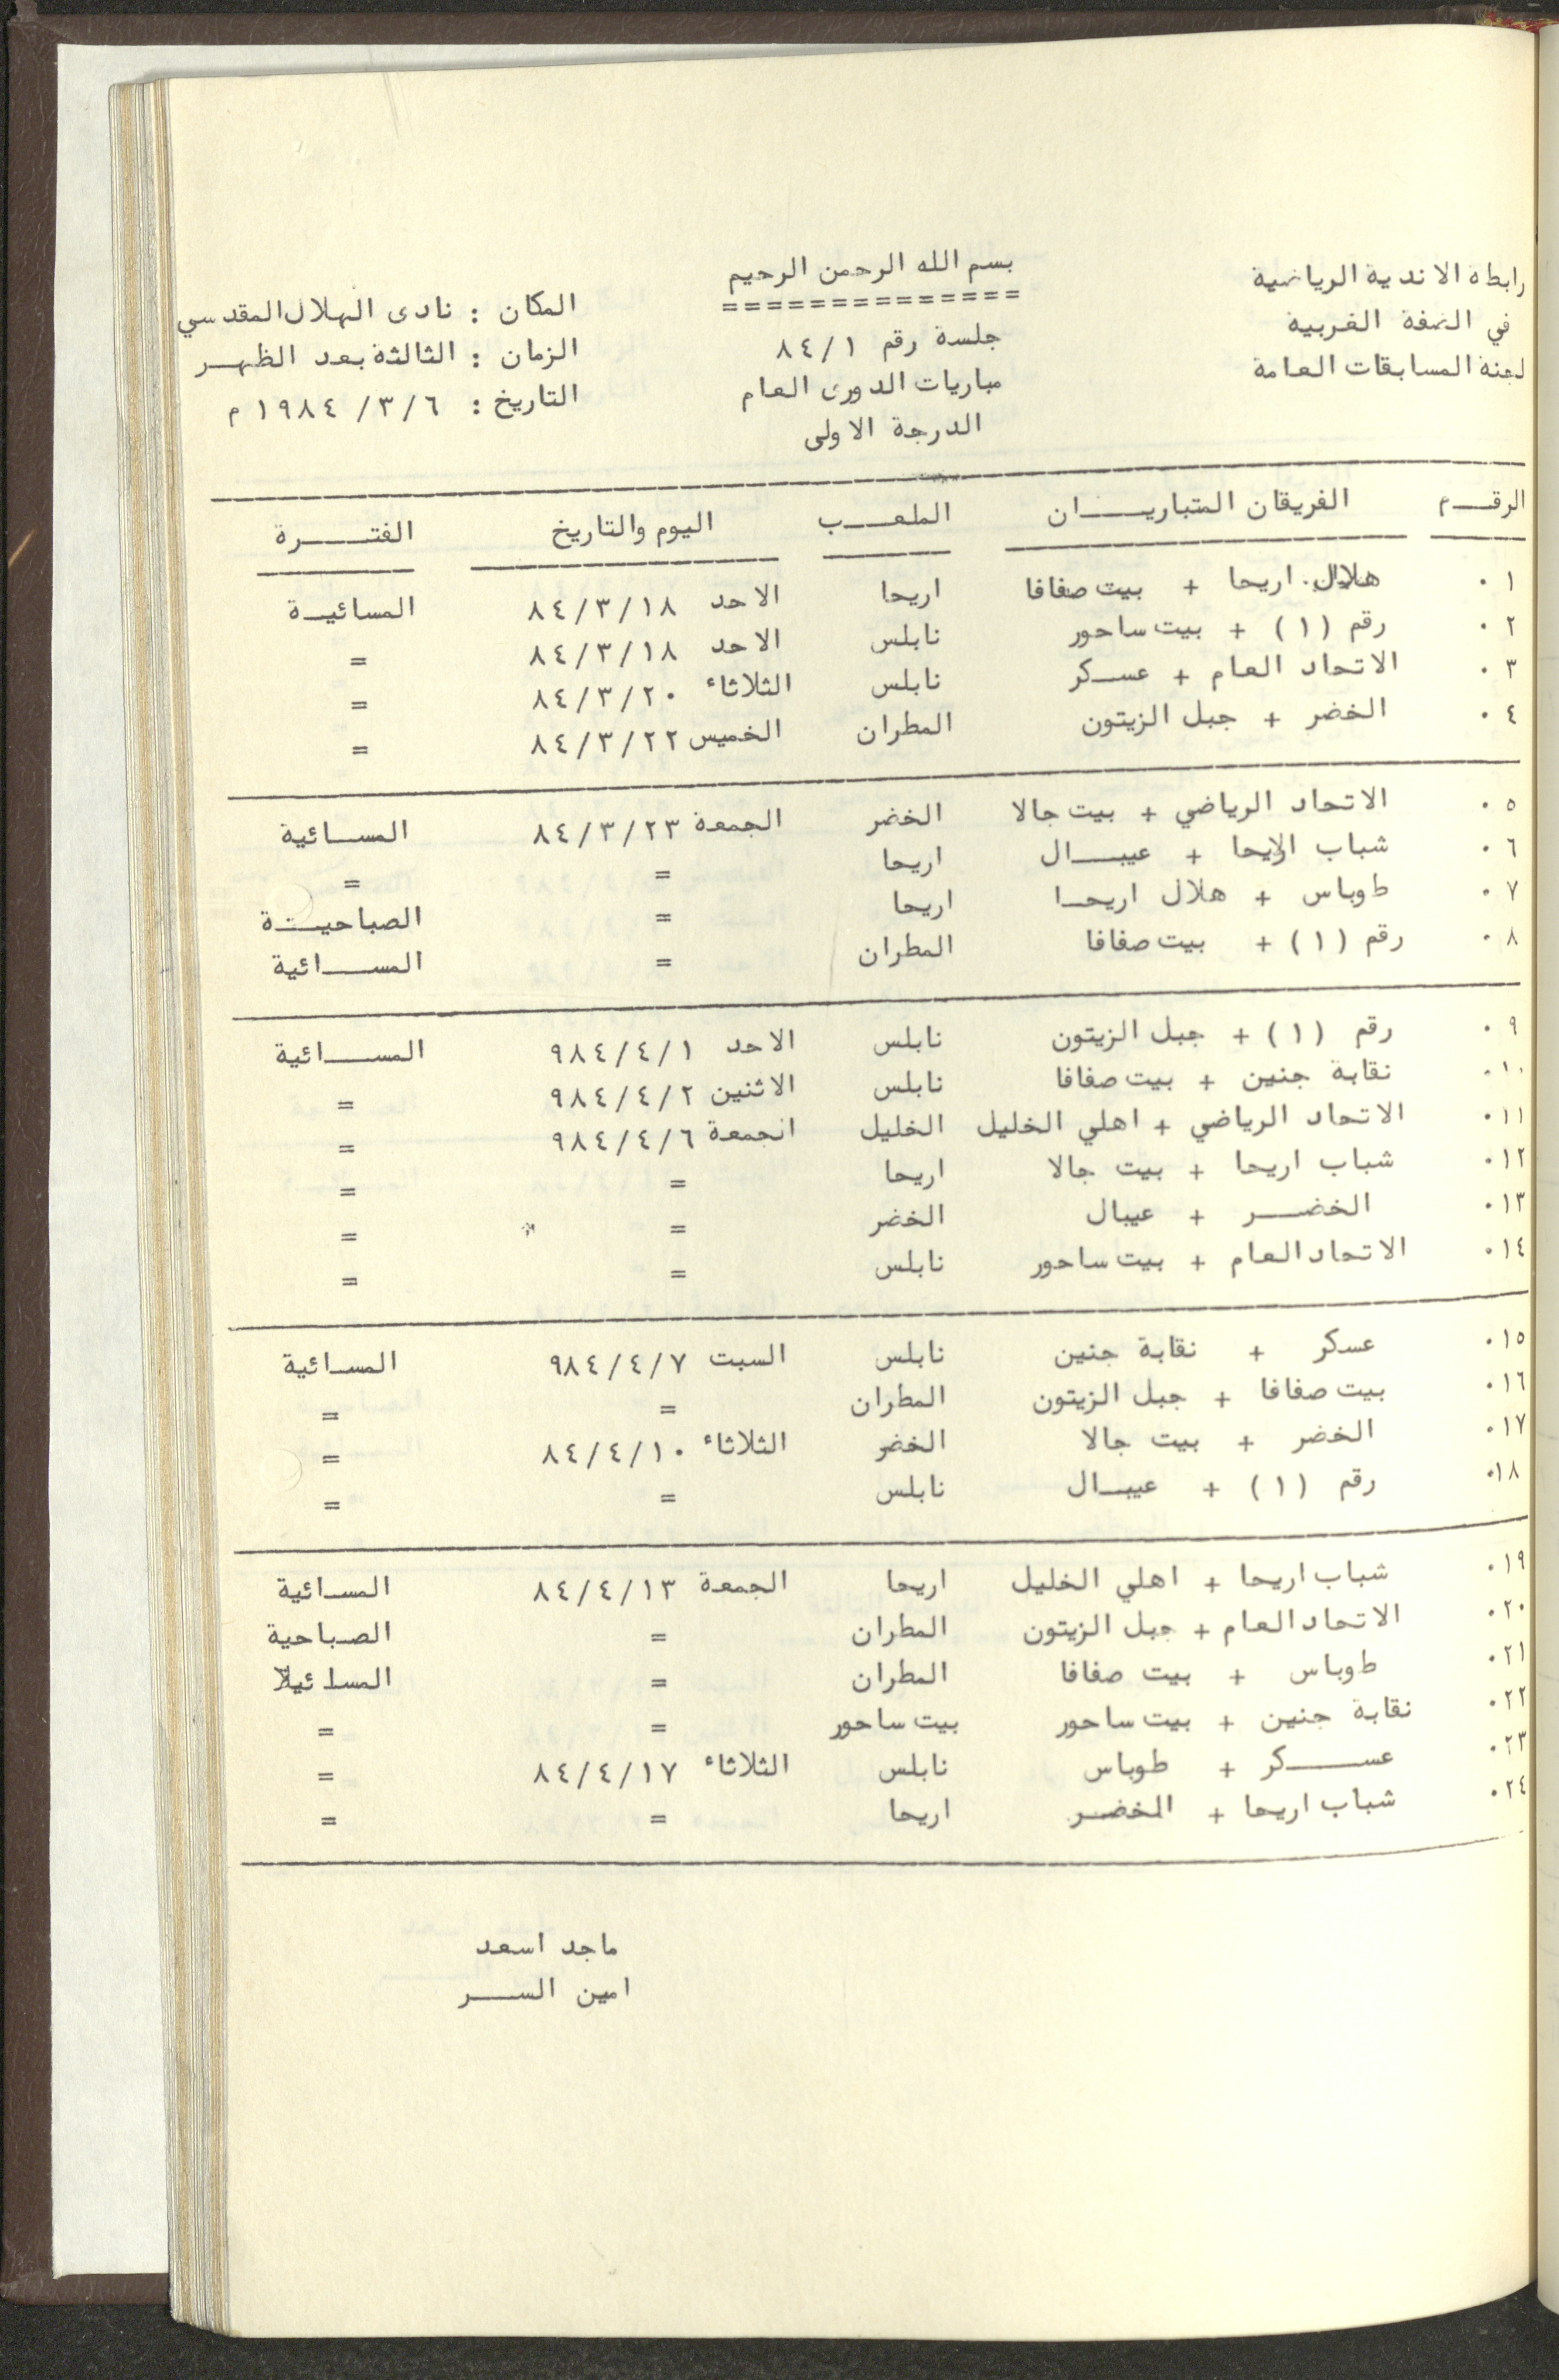 رابطة الاندية الرياضية
في الضفة الغربية
لجنة المسابقات العامة
بسم الله الرحمن الرحيم
==============
جلسة رقم ٨٤/١
مباريات الدورى العام
الدرجة الاولى
المكان : نادى الهلال المقدسي
الزمان : الثالثة بعد الظهر
التاريخ : ١٩٨٤/٣/٦ م
الرقم الفريقان المتباريان الملعب اليوم والتاريخ الفترة
٠١ هلال اريحا + بيت صفافا اريحا الاحد ٨٤/٣/١٨ المسائية
٠٢ رقم (١) + بيت ساحور نابلس الاحد ٨٤/٣/١٨ =
٠٣ الاتحاد العام + عسكر نابلس الثلاثاء ٨٤/٣/٢٠ =
٠٤ الخضر + جبل الزيتون المطران الخميس ٨٤/٣/٢٢ =
٠٥ الاتحاد الرياضي + بيت جالا الخضر الجمعة ٨٤/٣/٢٣ المسائية
٠٦ شباب اريحا + عيبال اريحا = =
٠٧ طوباس + هلال اريحا اريحا = الصباحية
٠٨ رقم (١) + بيت صفافا المطران = المسائية
٠٩ رقم (١) + جبل الزيتون نابلس الاحد ٩٨٤/٤/١ المسائية
٠١٠ نقابة جنين + بيت صفافا نابلس الاثنين ٩٨٤/٤/٢ =
٠١١ الاتحاد الرياضي + اهلي الخليل الخليل الجمعة ٩٨٤/٤/٦ =
٠١٢ شباب اريحا + بيت جالا اريحا = =
٠١٣ الخضر + عيبال الخضر = =
٠١٤ الاتحاد العام + بيت ساحور نابلس = =
٠١٥ عسكر + نقابة جنين نابلس السبت ٩٨٤/٤/٧ المسائية
٠١٦ بيت صفافا + جبل الزيتون المطران = =
٠١٧ الخضر + بيت جالا الخضر الثلاثاء ٨٤/٤/١٠ =
٠١٨ رقم (١) + عيبال نابلس = =
٠١٩ شباب اريحا + اهلي الخليل اريحا الجمعة ٨٤/٤/١٣ المسائية
٠٢٠ الاتحاد العام + جبل الزيتون المطران = الصباحية
٠٢١ طوباس + بيت صفافا المطران = المسائية
٠٢٢ نقابة جنين + بيت ساحور بيت ساحور = =
٠٢٣ عسكر + طوباس نابلس الثلاثاء ٨٤/٤/١٧ =
٠٢٤ شباب اريحا + الخضر اريحا = =
ماجد اسعد
امين السر